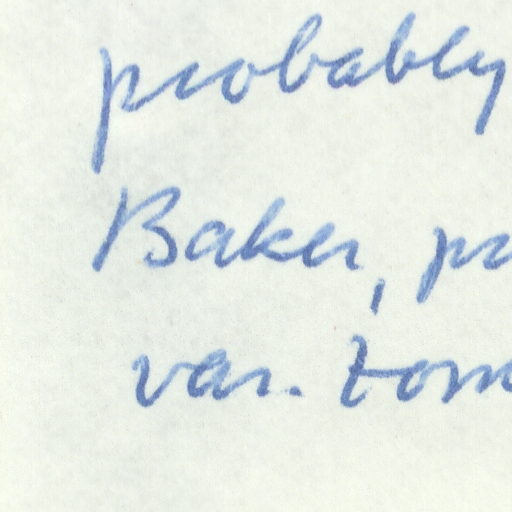 probably
Baker, pr
var. tom